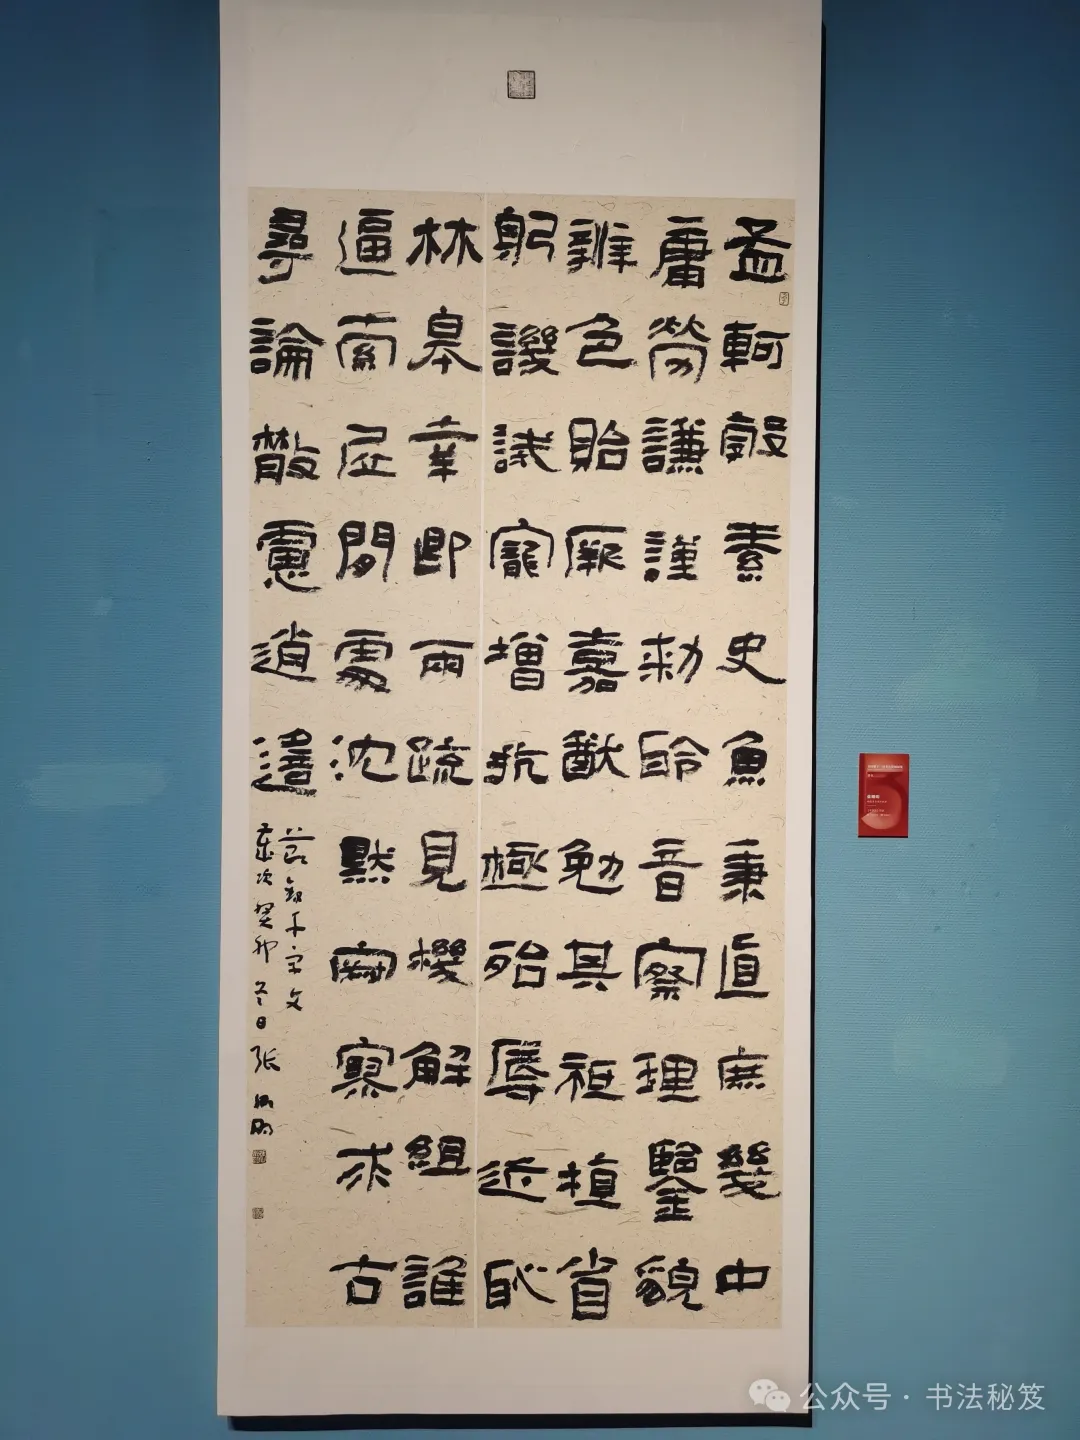 孟軻敦素史魚秉直庶幾中
庸勞謙謹勅聆音察理鑒貌
辨色貽厥嘉猷勉其祗植省
躬譏誡寵增抗極殆辱近恥
林皋幸即兩疏見機解組誰
逼索居閒處沈默寂寥求古
尋論散慮逍遙
節錄千字文
歲次癸卯冬日張
公众号·书法秘笈